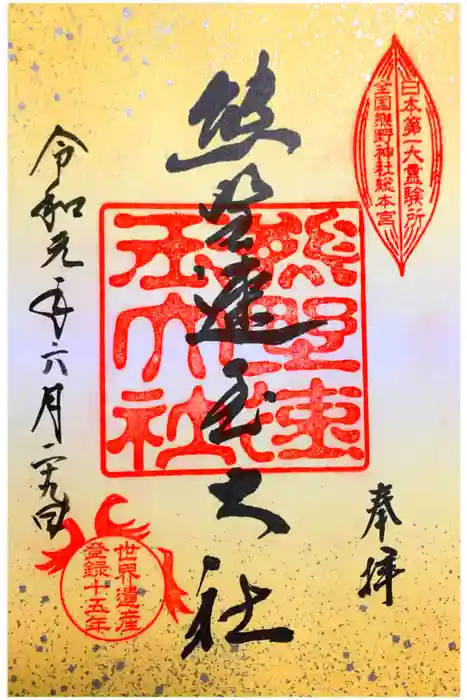 日本第一大霊験所
全国熊野神社総本宮
奉拝
熊野速玉大社
熊野速
玉大社
令和元年六月二十九日
世界遺産
登録十五年